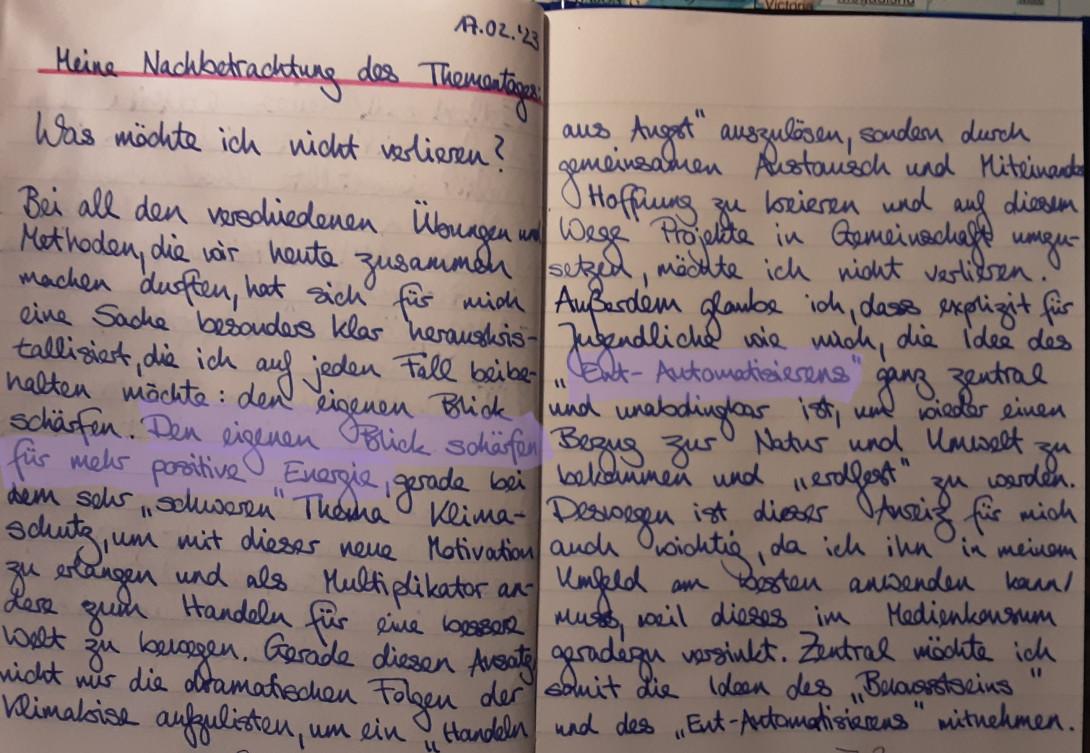 17.02.'23
Meine Nachbetrachtung des Thementages:
Was möchte ich nicht verlieren?
Bei all den verschiedenen Übungen und
Methoden, die wir heute zusammen
machen durften, hat sich für mich
eine Sache besonders klar herauskris-
tallisiert, die ich auf jeden Fall beibe-
halten möchte: den eigenen Blick
schärfen. Den eigenen Blick schärfen
für mehr positive Energie, gerade bei
dem sehr „schweren" Thema Klima-
schutz, um mit dieser neue Motivation
zu erlangen und als Multiplikator an-
dere zum Handeln für eine bessere
Welt zu bewegen. Gerade diesen Ansatz
nicht nur die dramatischen Folgen der
Klimakrise aufzulisten, um ein „Handeln
aus Angst" auszulösen, sondern durch
gemeinsamen Austausch und Miteinander
Hoffnung zu kreieren und auf diesem
Wege Projekte in Gemeinschaft umzu-
setzen, möchte ich nicht verlieren.
Außerdem glaube ich, dass explizit für
Jugendliche wie mich, die Idee des
„Ent-Automatisierens" ganz zentral
und unabdingbar ist, um wieder einen
Bezug zur Natur und Umwelt zu
bekommen und „erdfest" zu werden.
Deswegen ist dieser Anreiz für mich
auch wichtig, da ich ihn in meinem
Umfeld am besten anwenden kann/
muss, weil dieses im Medienkonsum
geradezu versinkt. Zentral möchte ich
somit die Ideen des „Bewusstseins"
und des „Ent-Automatisierens" mitnehmen.